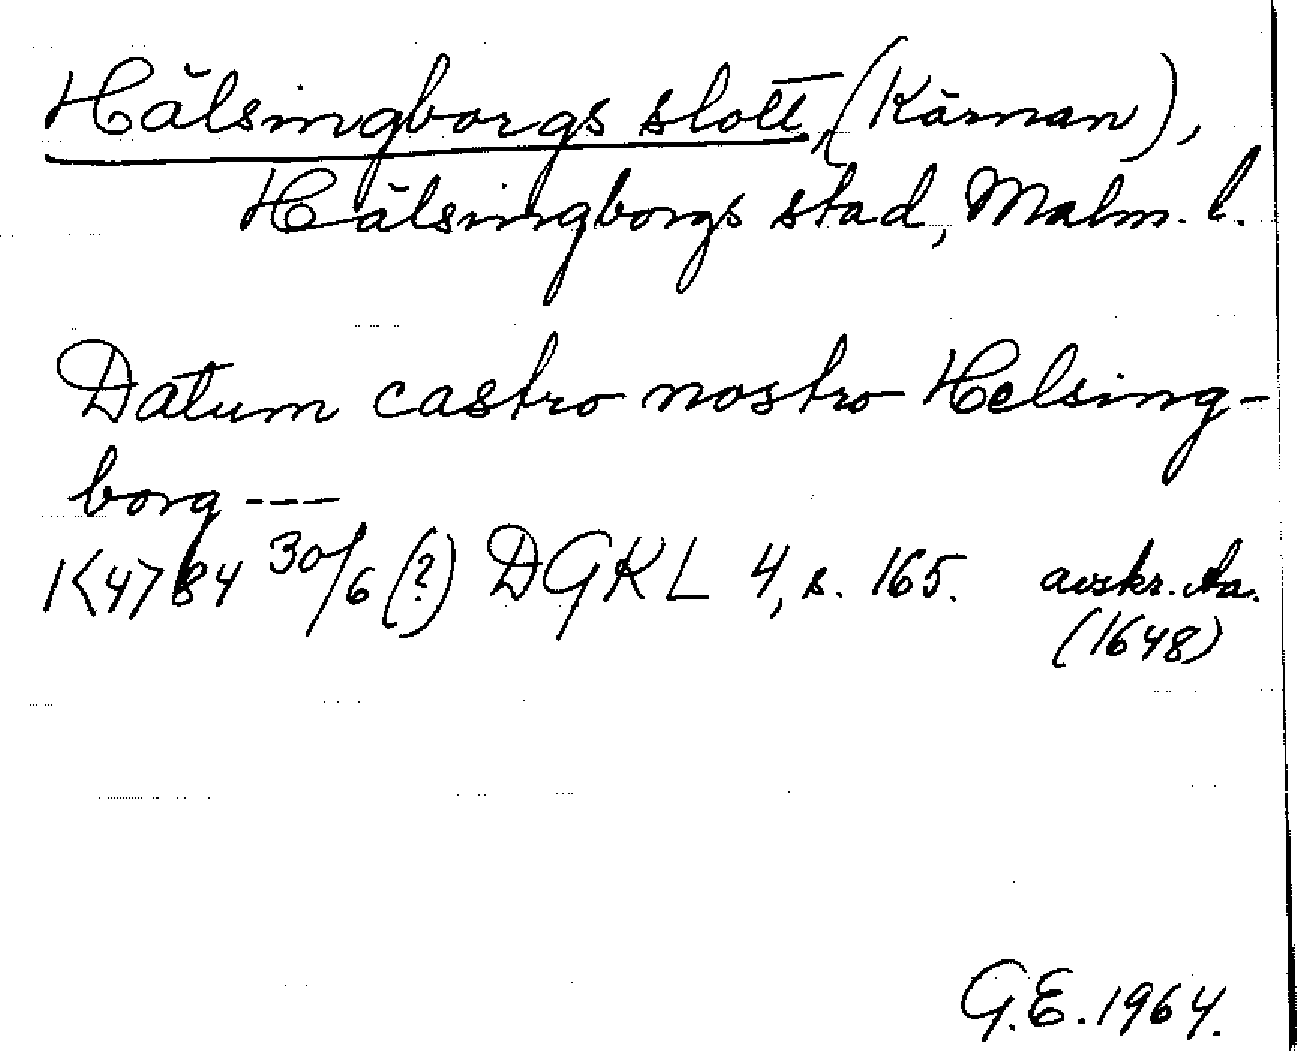 Hälsingborgs slott, (Kärnan),
Hälsingborgs stad, Malm. l.
Datum castro nostro Helsing-
borg ---
1<47>84 30/6 (?) DGKL 4, s. 165. avskr.
(1648)
G.E. 1964.